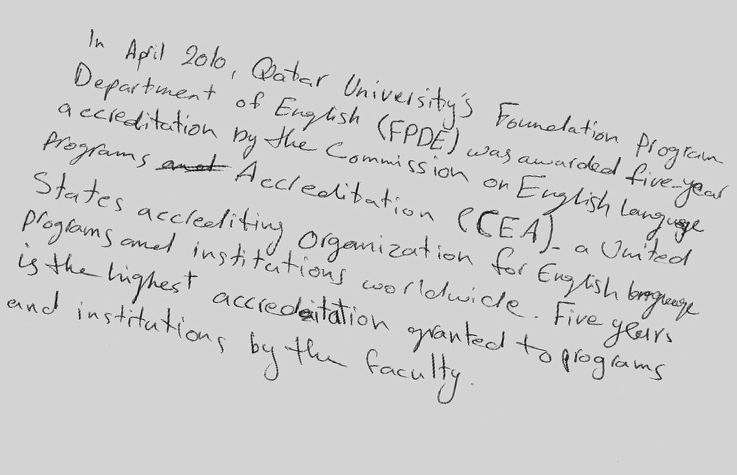 In April 2010, Qatar University's Foundation Program
Department of English (FPDE) was awarded five-year
accreditation by the Commission on English language
programs Accreditation (CEA) - a United
States accrediting Organization for English language
programs and institutions worldwide. Five years
is the highest accreditation granted to programs
and institutions by the faculty.